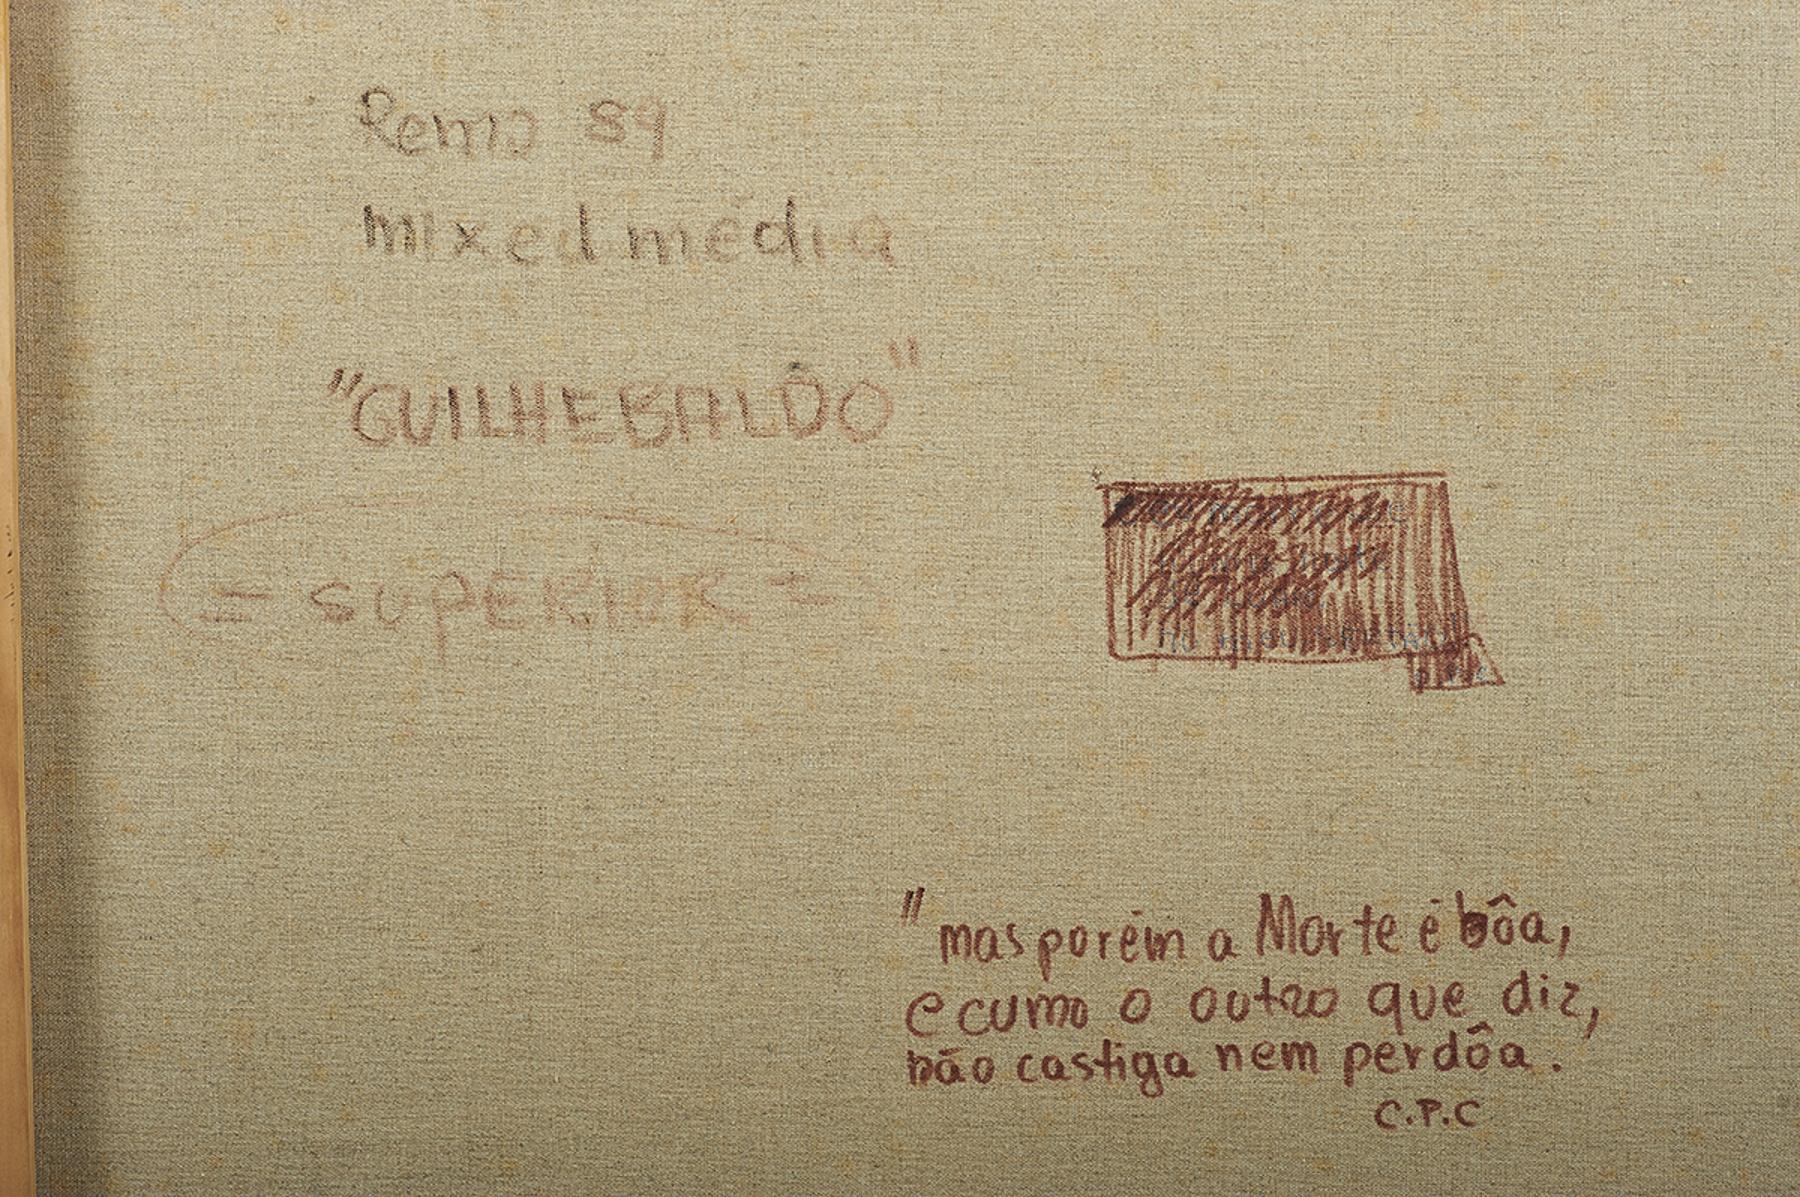 Remo 89
mixed média
"GUILHEBALDO"
= SUPERIOR =
"mas porém a Morte é bôa,
e cumo o outro que diz,
não castiga nem perdôa.
C.P.C